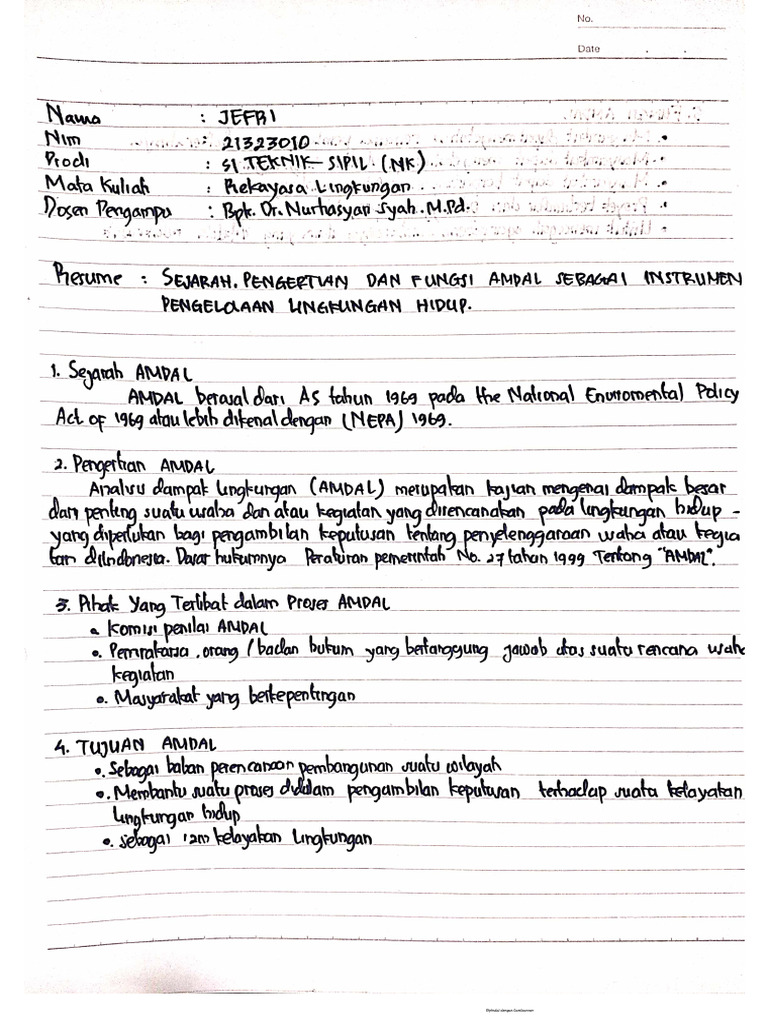 No.
Date
Nama : JEFRI
Nim : 21323010
Prodi : S1 TEKNIK SIPIL (NK)
Mata Kuliah : Rekayasa Lingkungan
Dosen Pengampu : Bpk. Dr. Nurhasyan Syah. M.Pd.
Resume : SEJARAH, PENGERTIAN DAN FUNGSI AMDAL SEBAGAI INSTRUMEN
PENGELOLAAN LINGKUNGAN HIDUP.
1. Sejarah AMDAL
AMDAL berasal dari AS tahun 1969 pada the National Enviromental Policy
Act of 1969 atau lebih dikenal dengan (NEPA) 1969.
2. Pengertian AMDAL
Analisis dampak lingkungan (AMDAL) merupakan kajian mengenai dampak besar
dan penting suatu usaha dan atau kegiatan yang direncanakan pada lingkungan hidup -
yang diperlukan bagi pengambilan keputusan tentang penyelenggaraan usaha atau kegia
tan di Indonesia. Dasar hukumnya Peraturan pemerintah No. 27 tahun 1999 Tentang "AMDAL".
3. Pihak Yang Terlibat dalam Proses AMDAL
• Komisi penilai AMDAL
• Pemrakarsa, orang / badan hukum yang bertanggung jawab atas suatu rencana usaha
kegiatan
• Masyarakat yang berkepentingan
4. TUJUAN AMDAL
• Sebagai bahan perencanaan pembangunan suatu wilayah
• Membantu suatu proses didalam pengambilan keputusan terhadap suatu kelayakan
lingkungan hidup
• Sebagai izin kelayakan lingkungan
Dipindai dengan CamScanner